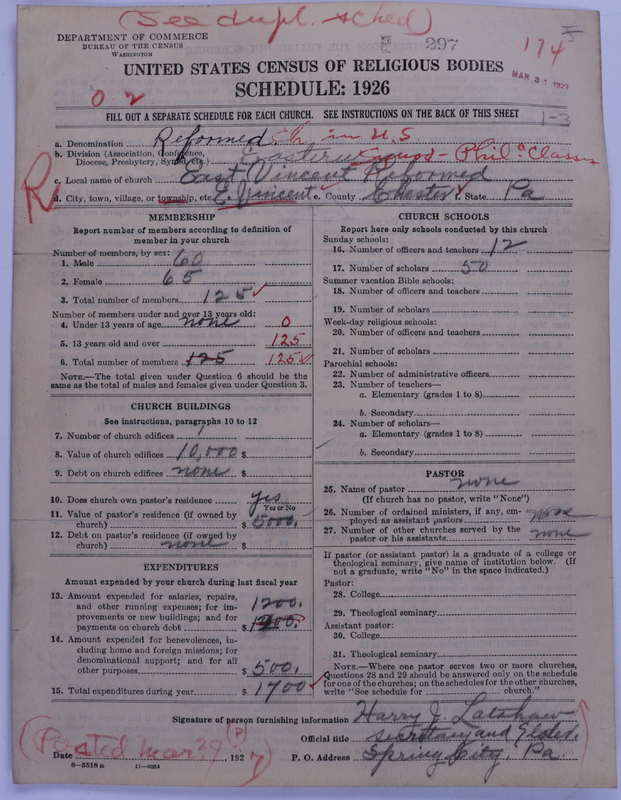 (See dupl. sched)
DEPARTMENT OF COMMERCE
BUREAU OF THE CENSUS
WASHINGTON
297
174
MAR 31 1927
UNITED STATES CENSUS OF RELIGIOUS BODIES
SCHEDULE: 1926
0 2
FILL OUT A SEPARATE SCHEDULE FOR EACH CHURCH. SEE INSTRUCTIONS ON THE BACK OF THIS SHEET
1-3
a. Denomination Reformed Ch. in U.S
b. Division (Association, Conference, Diocese, Presbytery, Synod, etc.) Eastern Synod - Phila Classis
c. Local name of church East Vincent Reformed
R
d. City, town, village, or township, etc. E. Vincent e. County Chester f. State Pa
MEMBERSHIP
Report number of members according to definition of
member in your church
Number of members, by sex:
1. Male 60
2. Female 65
3. Total number of members 125 ✓
Number of members under and over 13 years old:
4. Under 13 years of age none 0
5. 13 years old and over 125
6. Total number of members 125 125 ✓
NOTE.—The total given under Question 6 should be
same as the total of males and females given under Question 3.
CHURCH BUILDINGS
See instructions, paragraphs 10 to 12
7. Number of church edifices 1
8. Value of church edifices 10,000 $
9. Debt on church edifices none $
10. Does church own pastor's residence yes
Yes or No
11. Value of pastor's residence (if owned by
church) $ 5000.
12. Debt on pastor's residence (if owned by
church) none $
EXPENDITURES
Amount expended by your church during last fiscal year
13. Amount expended for salaries, repairs,
and other running expenses; for im- 1200.
provements or new buildings; and for
payments on church debt $ 1200.
14. Amount expended for benevolences, in-
cluding home and foreign missions; for
denominational support; and for all
other purposes $ 500.
15. Total expenditures during year $ 1700 ✓
CHURCH SCHOOLS
Report here only schools conducted by this church
Sunday schools:
16. Number of officers and teachers 12
17. Number of scholars 50
Summer vacation Bible schools:
18. Number of officers and teachers
19. Number of scholars
Week-day religious schools:
20. Number of officers and teachers
21. Number of scholars
Parochial schools:
22. Number of administrative officers
23. Number of teachers—
a. Elementary (grades 1 to 8)
b. Secondary
24. Number of scholars—
a. Elementary (grades 1 to 8)
b. Secondary
PASTOR
25. Name of pastor none
(If church has no pastor, write "None")
26. Number of ordained ministers, if any, em-
ployed as assistant pastors none
27. Number of other churches served by the
pastor or his assistants none
If pastor (or assistant pastor) is a graduate of a college or
theological seminary, give name of institution below. (If
not a graduate, write "No" in the space indicated.)
Pastor:
28. College
29. Theological seminary
Assistant pastor:
30. College
31. Theological seminary
NOTE.—Where one pastor serves two or more churches,
Questions 28 and 29 should be answered only on the schedule
for one of the churches; on the schedules for the other churches,
write "See schedule for church."
Signature of person furnishing information Harry J. Latshaw
Official title secretary and Elder.
(Posted Mar. 29 (?) 7)
Date , 192 P. O. Address Spring City, Pa.
8-5518 a 11-2564